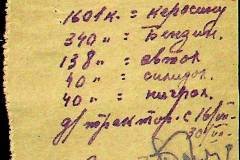 1601 к. = керосину
340 " = Бензин.
138 " = автол
40 " = солидол.
40 " = нигрол.
д/трактор. с 16/VII-
30/VII-